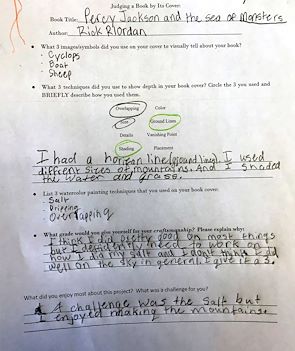 Judging a Book by Its Cover:
Book Title: Percy Jackson and the sea of Monsters
Author: Rick RIordan
• What 3 images/symbols did you use on your cover to visually tell about your book?
· Cyclops
· Boat
· Sheep
• What 3 techniques did you use to show depth in your book cover? Circle the 3 you used and
BRIEFLY describe how you used them.
Overlapping Color
Size Ground Lines
Details Vanishing Point
Shading Placement
I had a horizan line (ground line). I used
diffrent sizes of mountains. And I shaded
the water and grass.
• List 3 watercolor painting techniques that you used on your book cover.
· Salt
· Dripping
· Overlapping
• What grade would you give yourself for your craftsmanship? Please explain why:
I think I did pretty good on most things
but I definitely need to work on
how I did my salt and I don't think I did
well on the sky in general. I give it a
What did you enjoy most about this project? What was a challenge for you?
A challenge was the Salt but
I enjoyed making the mountains.